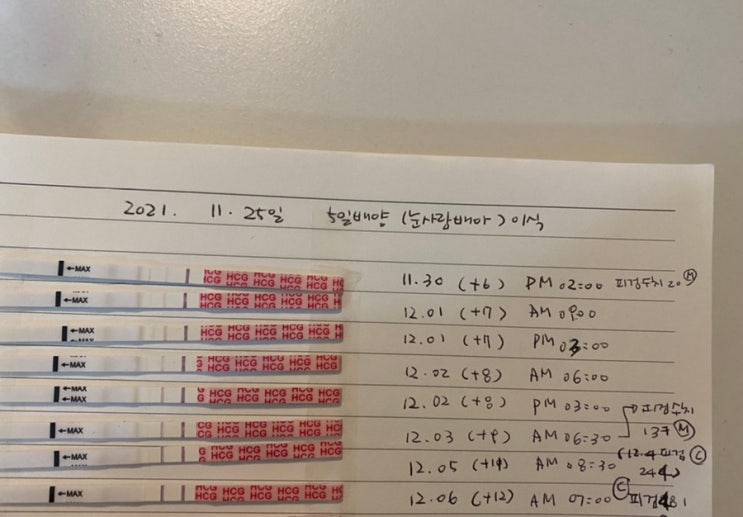 2021. 11. 25일 5일배양 (눈사람배아) 이식
←MAX HCG HCG HCG HCG HCG 11.30 (+6) PM 02:00 피검수치 20 Ⓜ
←MAX HCG HCG HCG HCG 12.01 (+7) AM 09:00
←MAX HCG HCG HCG HCG 12.01 (+7) PM 03:00
←MAX HCG HCG HCG HCG 12.02 (+8) AM 06:00
←MAX HCG HCG HCG HCG 12.02 (+8) PM 03:00 피검수치
←MAX HCG HCG HCG HCG 12.03 (+9) AM 06:30 137 Ⓜ
←MAX HCG HCG HCG HCG 12.05 (+11) AM 08:30 (12.4 피검 Ⓒ 244)
←MAX HCG HCG HCG HCG 12.06 (+12) AM 07:00 Ⓒ 피검 481